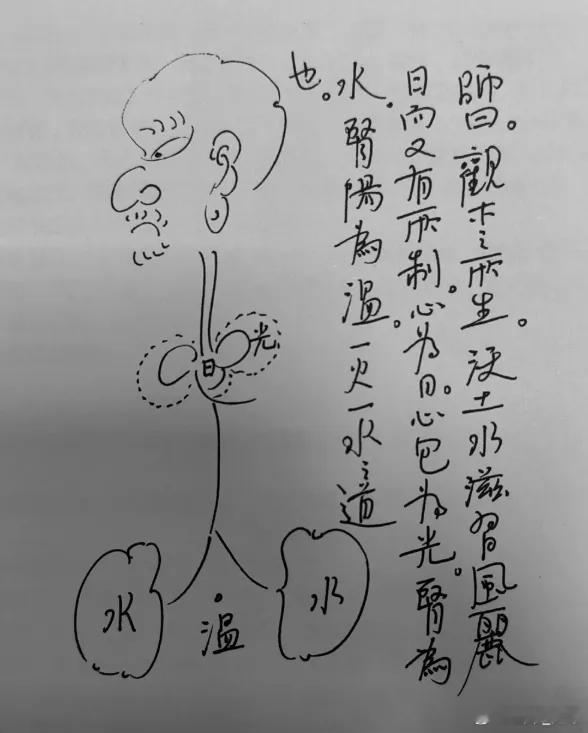 師曰。觀木之所生。沃土水滋習風麗
日而又有所制。心為日。心包為光。腎為
水。腎陽為溫。一火一水之道
也。
光
日
水
溫
水